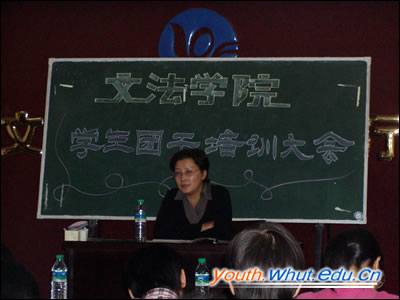 文法学院
学生团干培训大会
Youth.Whut.edu.Cn